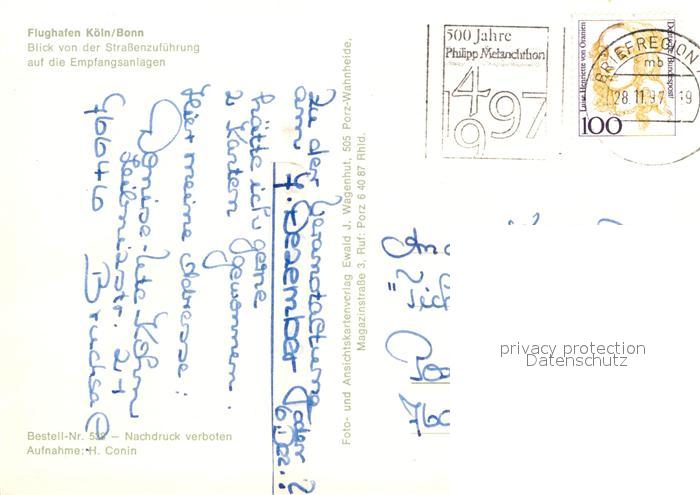 Flughafen Köln/Bonn
Blick von der Straßenzuführung
auf die Empfangsanlagen
500 Jahre
Philipp Melanchthon
1497
1997
Luise Henriette von Oranien
Deutsche Bundespost
100
BRIEFREGION
mb
28.11.97-19
zu der Veranstaltung
am 4. Dezember oder
6. Dez.?
hätte ich gerne
2 Karten gewonnen.
Hier meine Adresse:
Denise-Jute Köhm
Heilmannstr. 21
76646 Bruchsal
Foto- und Ansichtskartenverlag Ewald J. Wagenhut, 505 Porz-Wahnheide,
Magazinstraße 3, Ruf: Porz 6 40 87 Rhld.
An
76
privacy protection
Datenschutz
Bestell-Nr. – Nachdruck verboten
Aufnahme: H. Conin